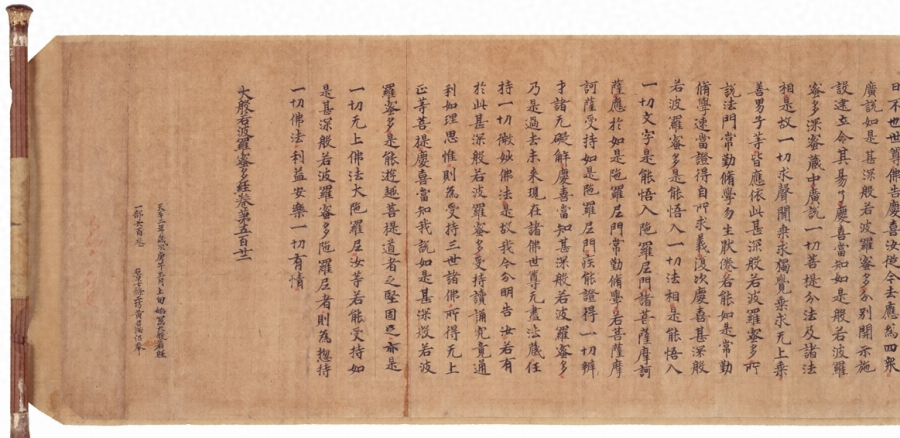 日不也世尊佛告慶喜汝從今去應爲四衆
廣說如是甚深般若波羅蜜多分別開示施
設建立令其易了慶喜當知如是般若波羅
蜜多深蜜藏中廣說一切菩提分法及諸法
相是故一切求聲聞乘求獨覺乘求无上乘
善男子等皆應依此甚深般若波羅蜜多所
說法門常勤脩學勿生猒倦若能如是常勤
脩學速當證得自所求義復次慶喜甚深般
若波羅蜜多是能悟入一切法相是能悟入
一切文字是能悟入陁羅尼門諸菩薩摩訶
薩應於如是陁羅尼門常勤脩學若菩薩摩
訶薩受持如是陁羅尼門疾能證得一切辯
才諸无礙解慶喜當知甚深般若波羅蜜多
乃是過去未來現在諸佛世尊无盡法藏任
持一切微妙佛法是故我今分明告汝若有
於此甚深般若波羅蜜多受持讀誦究竟通
利如理思惟則爲受持三世諸佛所得无上
正等菩提慶喜當知我說如是甚深般若波
羅蜜多是能遊趣菩提道者之堅固足亦是
一切无上佛法大陁羅尼汝等若能受持如
是甚深般若波羅蜜多陁羅尼者則爲揔持
一切佛法利益安樂一切有情
大般若波羅蜜多經卷第五百廿二
一部六百卷